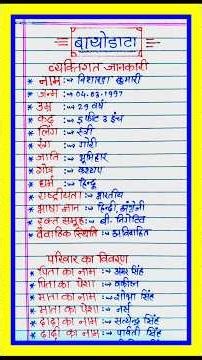 बायोडाटा
व्यक्तिगत जानकारी
* नाम :→ निशारदा कुमारी
* जन्म :→ 04.03.1997
* उम्र :→ 29 वर्ष
* कद :→ 5 फीट 3 इंच
* लिंग :→ स्त्री
* रंग :→ गोरी
* जाति :→ भूमिहार
* गोत्र :→ कश्यप
* धर्म :→ हिन्दू
* राष्ट्रीयता :→ भारतीय
* भाषा ज्ञान :→ हिन्दी, अंग्रेजी
* रक्त समूह :→ बी. निगेटिव
* वैवाहिक स्थिति :→ अविवाहित
परिवार का विवरण
* पिता का नाम :→ अमर सिंह
* पिता का पेशा :→ वकील
* माता का नाम :→ शोभा सिंह
* माता का पेशा :→ नर्स
* दादा का नाम :→ सत्येन्द्र सिंह
* दादी का नाम :→ पार्वती सिंह